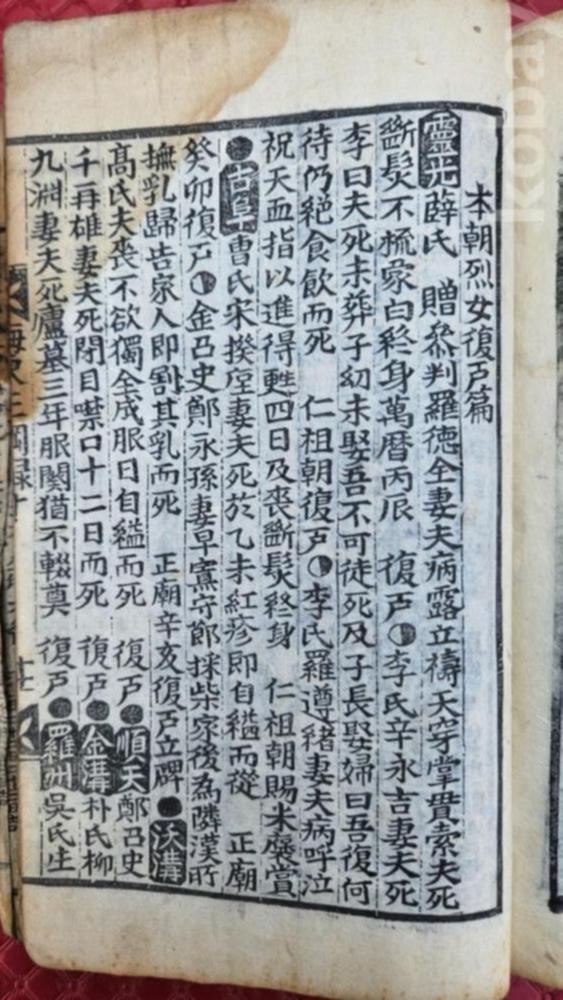 本朝烈女復戶篇
靈光薛氏 贈叅判羅德全妻夫病露立禱天穿掌貫索夫死
斷髮不梳蒙白終身萬曆丙辰 復戶李氏辛永吉妻夫死
李曰夫死未葬子幼未娶吾不可徒死及子長娶婦曰吾復何
待仍絕食飮而死 仁祖朝復戶李氏羅遵緖妻夫病呼泣
祝天血指以進得甦四日及喪斷髮終身 仁祖朝賜米褒賞
古阜曺氏宋揆窐妻夫死於乙未紅疹即自縊而從 正廟
癸卯復戶金召史鄭永孫妻早寡守節採柴家後為隣漢所
撫乳歸告家人即割其乳而死 正廟辛亥復戶立碑沃溝
高氏夫喪不欲獨全成服日自縊而死 復戶順天鄭召史
千再雄妻夫死閉目噤口十二日而死 復戶金溝朴氏柳
九淵妻夫死廬墓三年服闋猶不輟奠 復戶羅州吳氏生
koba